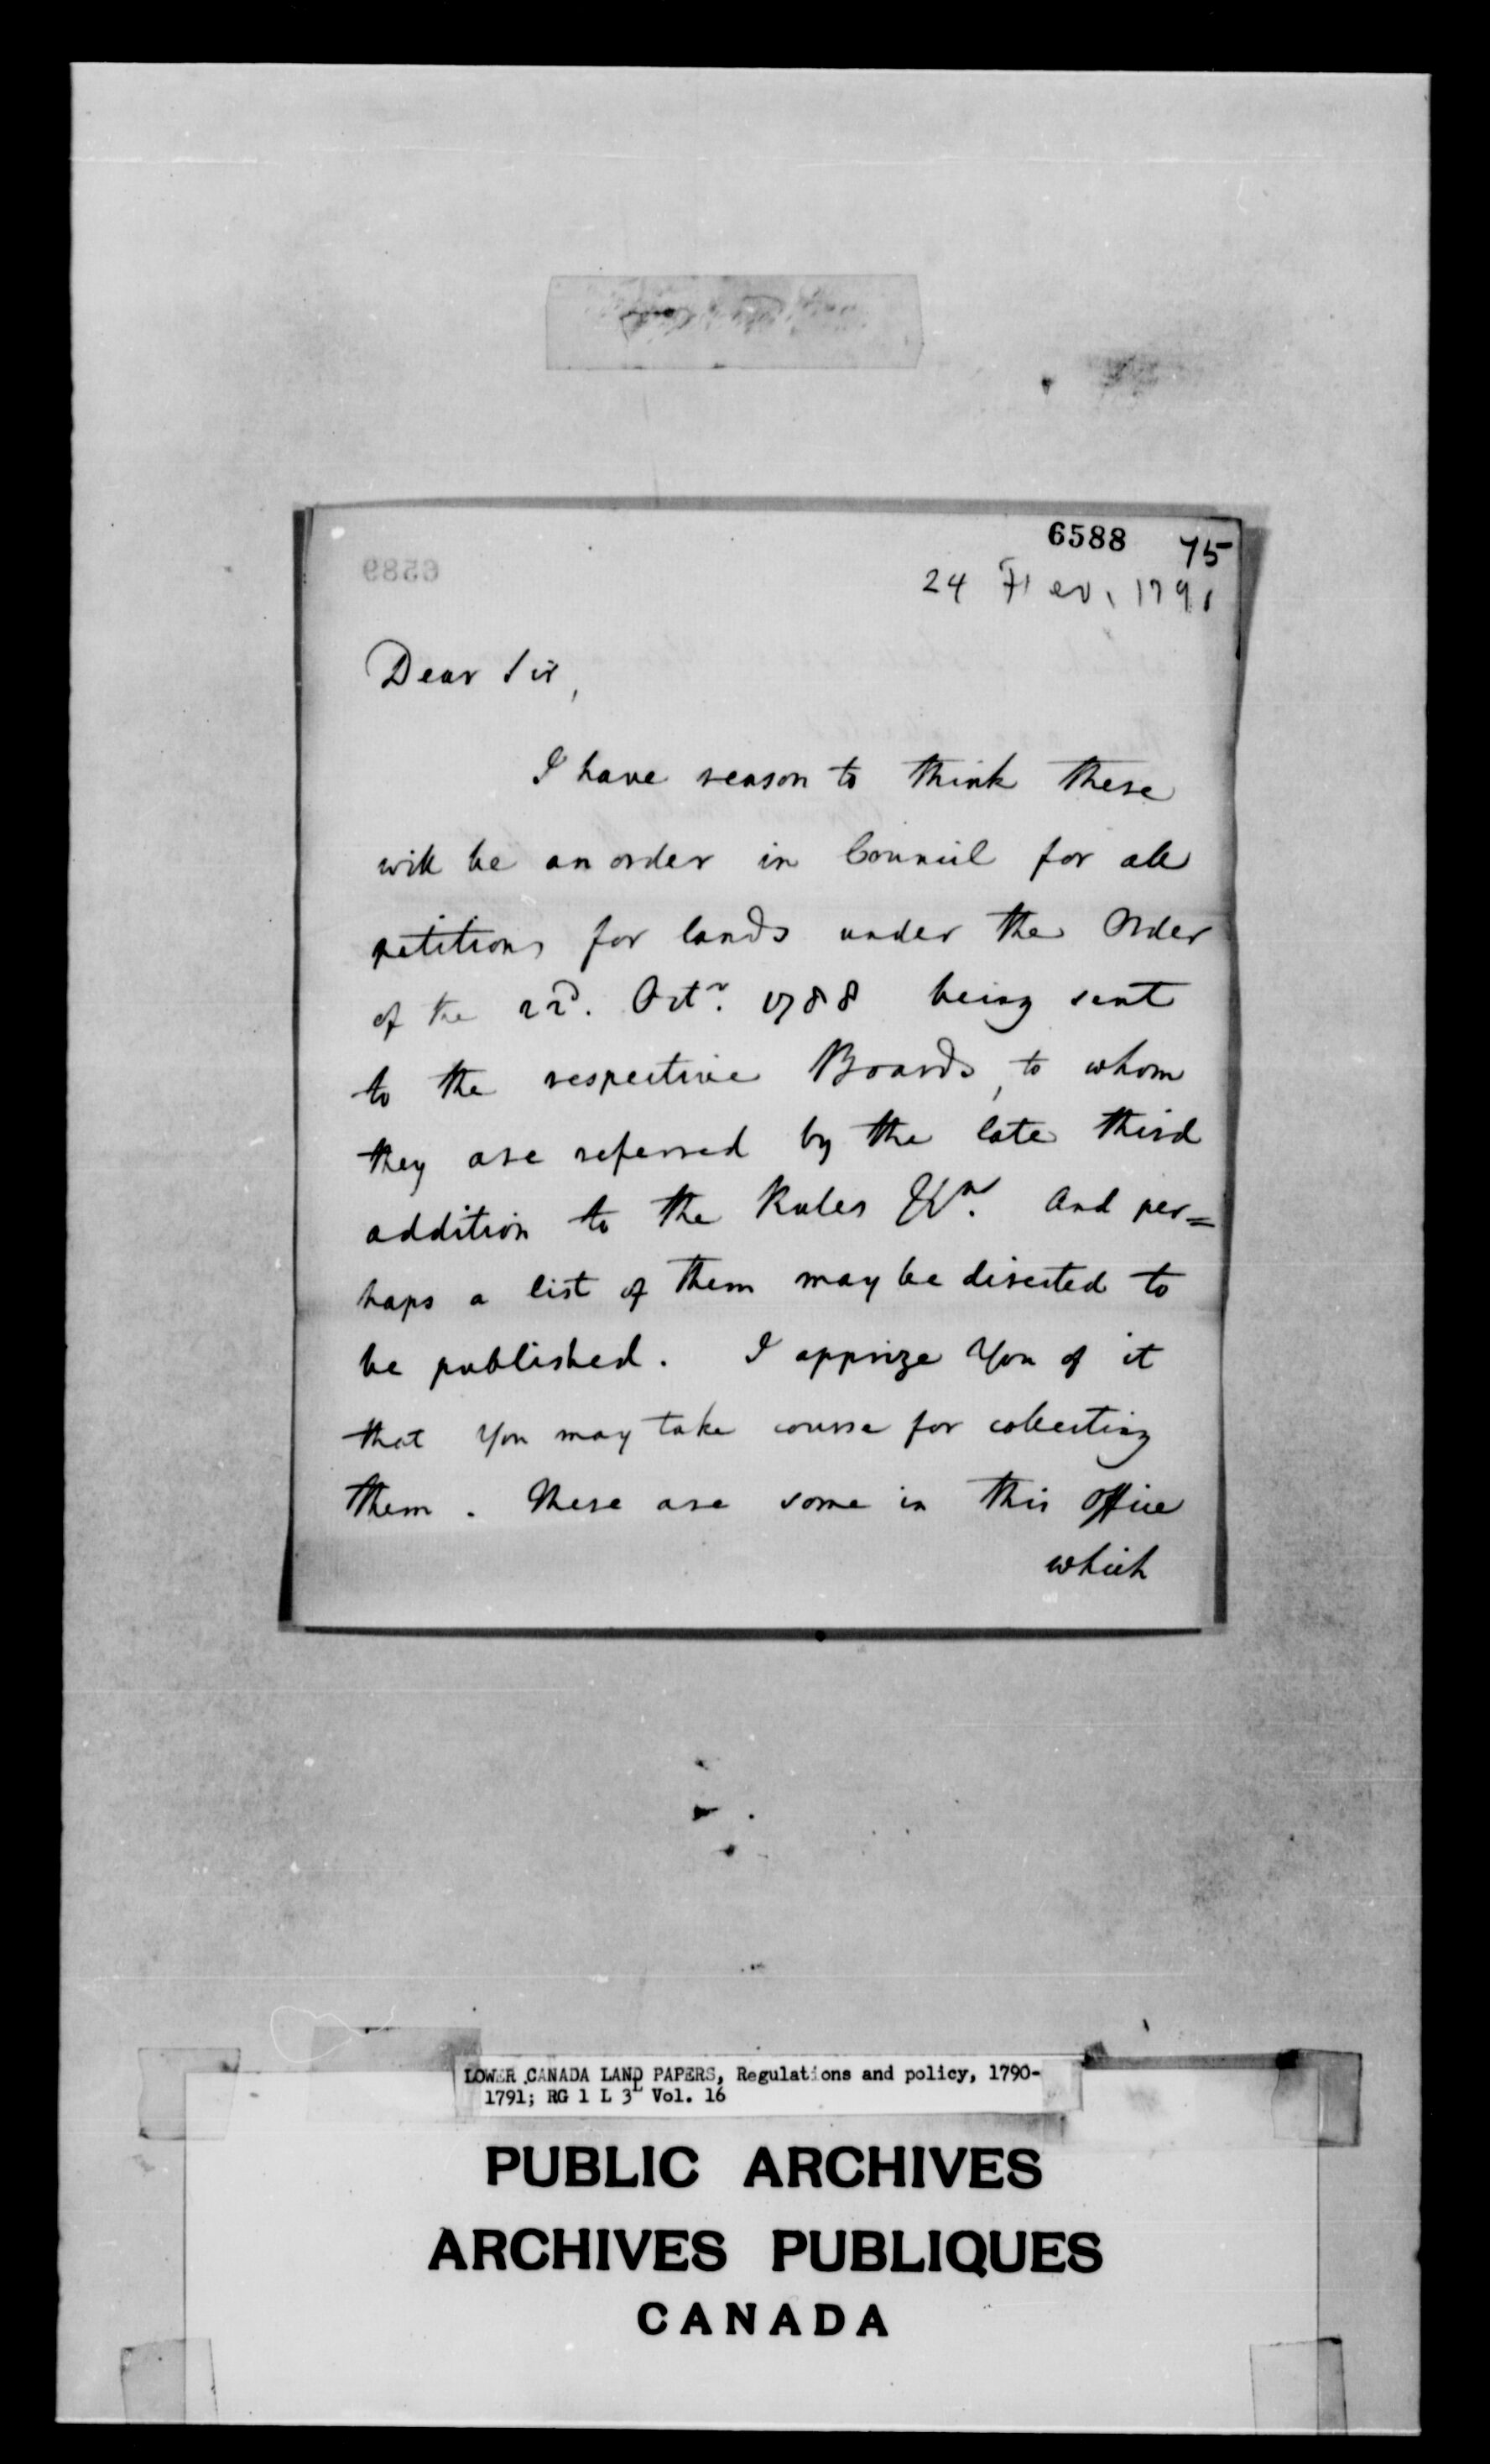 6588 75
6589
24 Fev. 1791
Dear Sir,
I have reason to think there
will be an order in Council for all
petitions for lands under the Order
of the 22d. Octr. 1788 being sent
to the respective Boards, to whom
they are referred by the late third
addition to the Rules &ca. And per=
haps a list of them may be directed to
be published. I apprize You of it
that You may take course for collecting
them. There are some in this Office
which
LOWER CANADA LAND PAPERS, Regulations and policy, 1790-
1791; RG 1 L 3L Vol. 16
PUBLIC ARCHIVES
ARCHIVES PUBLIQUES
CANADA